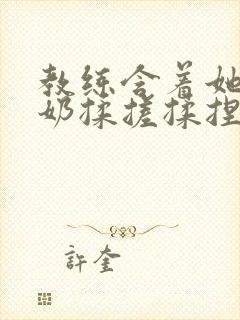 教练含着她
奶揉搓揉捏
許奎